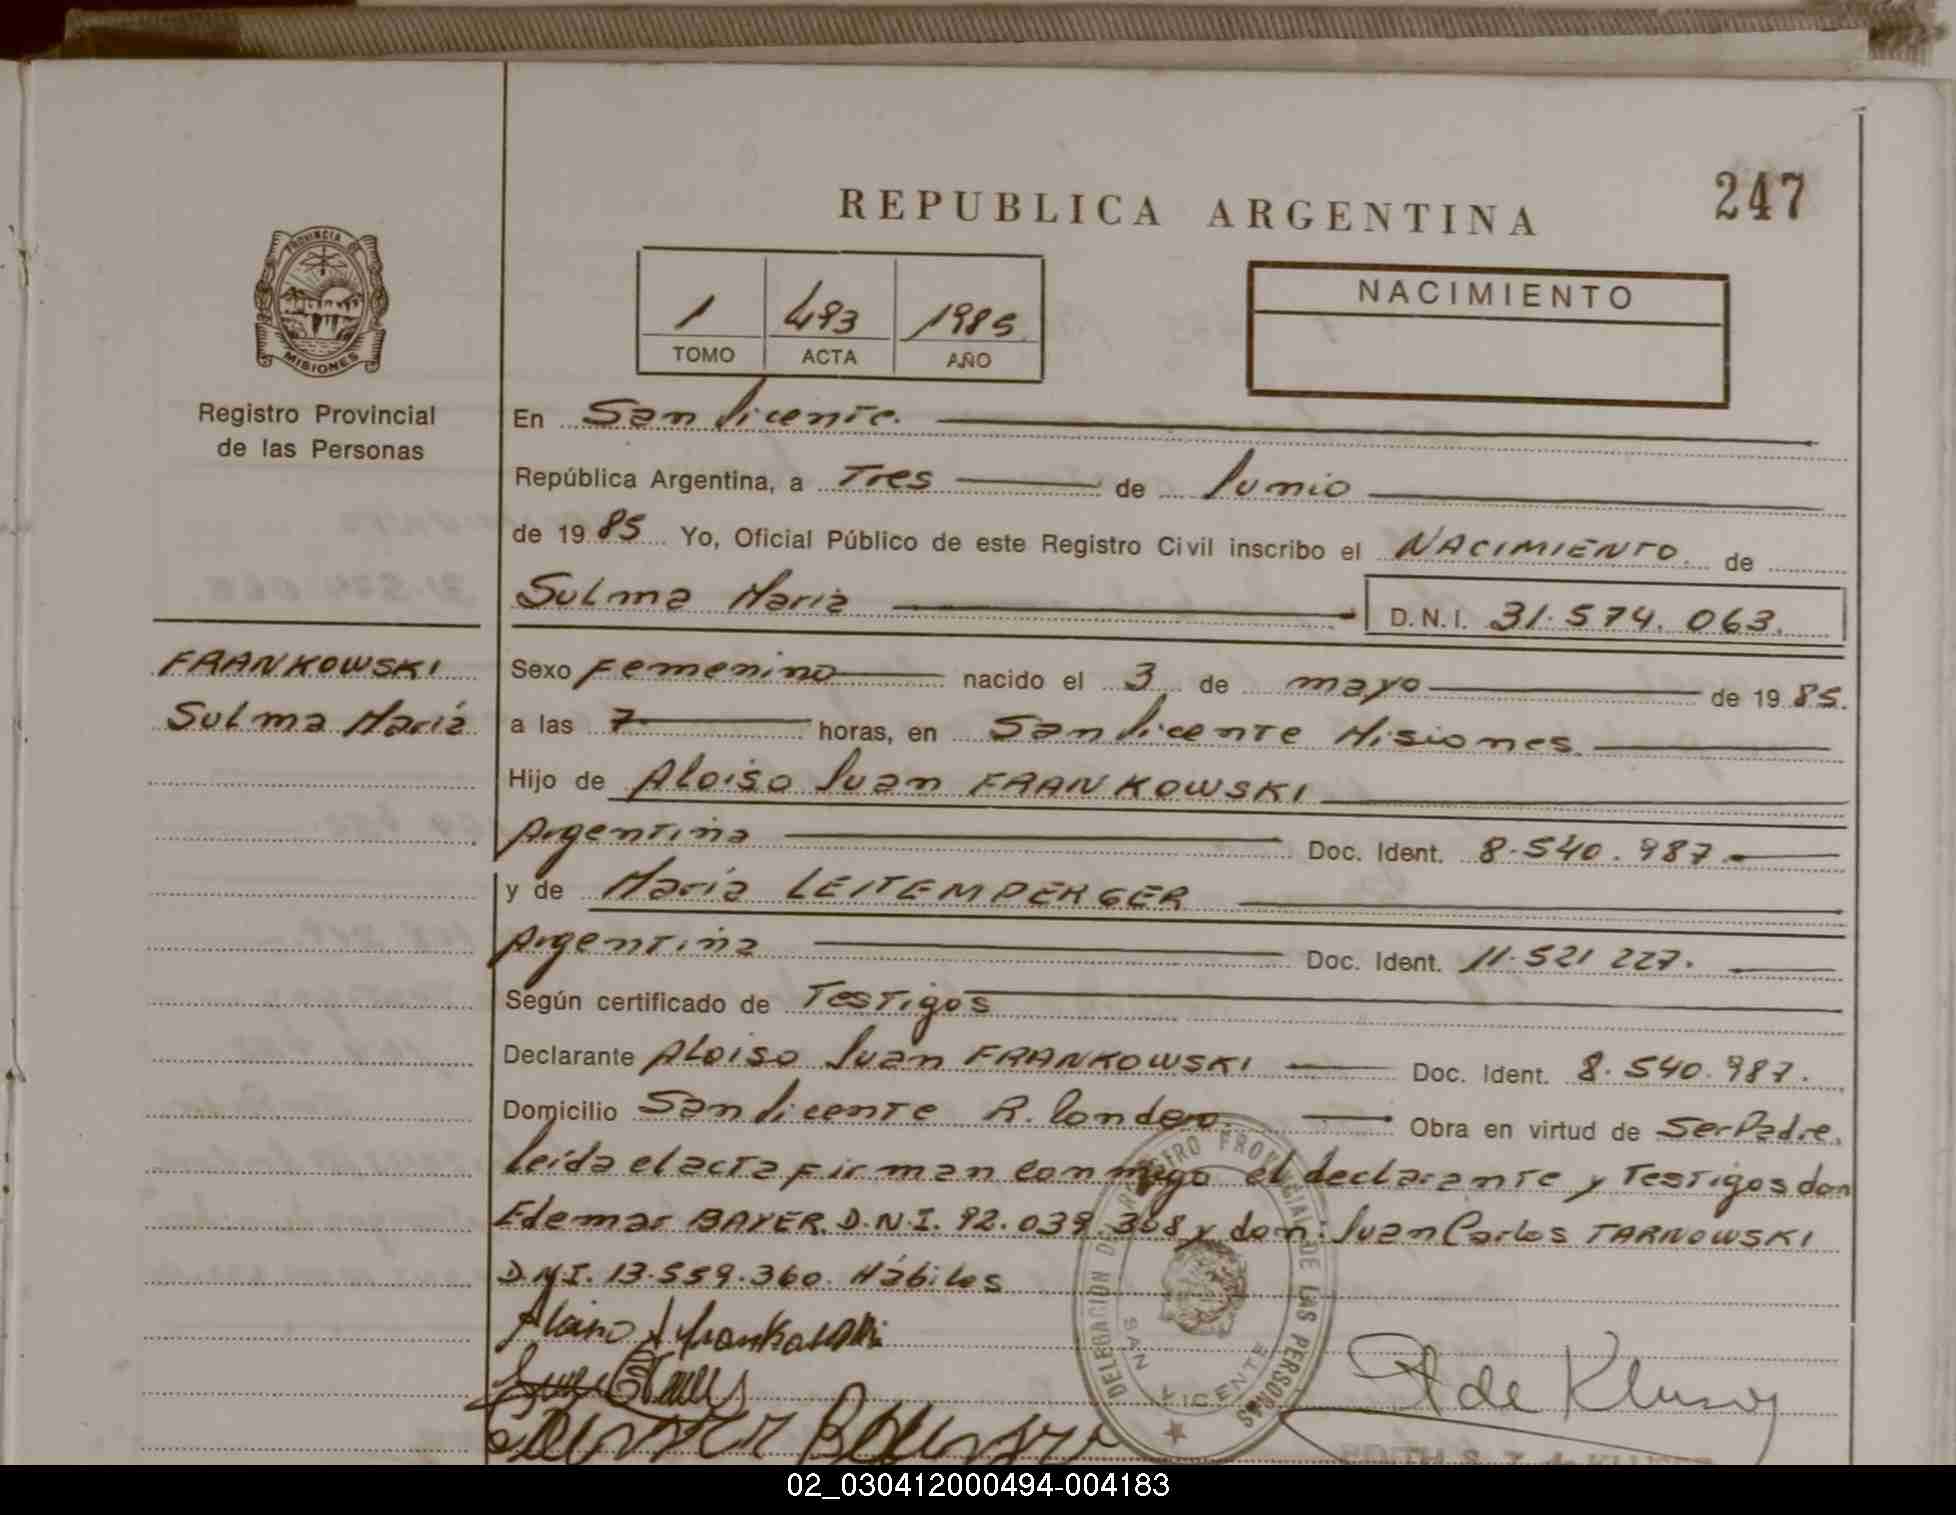 247
REPUBLICA ARGENTINA
PROVINCIA DE
MISIONES
1 493 1985
TOMO ACTA AÑO
NACIMIENTO
Registro Provincial
de las Personas
En San Vicente.
República Argentina, a Tres de Junio
de 19 85 Yo, Oficial Público de este Registro Civil inscribo el NACIMIENTO. de
Sulma María D.N.I. 31.574.063.
FRANKOWSKI
Sulma María
Sexo Femenino nacido el 3 de mayo de 19 85.
a las 7 horas, en San Vicente Misiones
Hijo de Aloiso Juan FRANKOWSKI
Argentina Doc. Ident. 8.540.987.
y de María LEITEMPERGER
Argentina Doc. Ident. 11.521 227.
Según certificado de Testigos
Declarante Aloiso Juan FRANKOWSKI Doc. Ident. 8.540.987.
Domicilio San Vicente R. Condero Obra en virtud de Ser Padre.
leída el acta firman conmigo el declarante y Testigos don
Edemar BAYER. D.N.I. 92.039.368 y don: Juan Carlos TARNOWSKI
D.N.I. 13.559.360. Hábiles
DELEGACION DEL REGISTRO PROVINCIAL DE LAS PERSONAS
SAN VICENTE
02_030412000494-004183